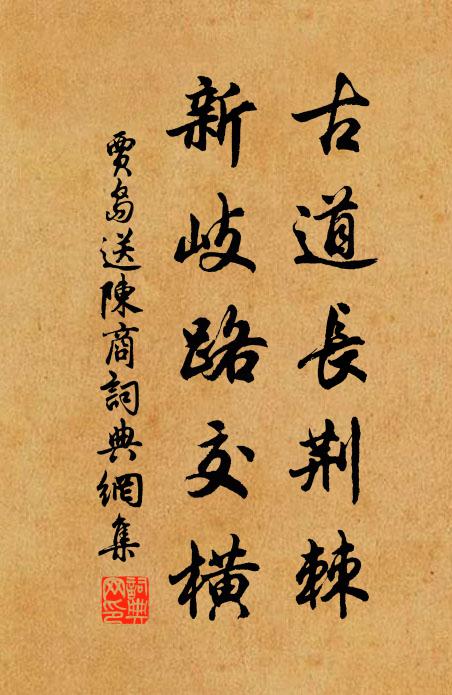 古道長荆棘
新岐路交橫
賈島送陳商詞典網集
詞典網印